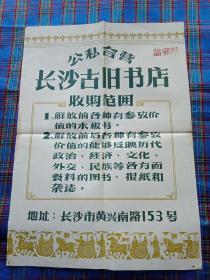 公私合营
长沙古旧书店
收购范围
1. 解放前各种有参攷价
值的木板书。
2. 解放前后各种有参攷
价值的能够反映历代
政治、经济、文化、
外交、民族等各方面
资料的图书、报纸和
杂志。
地址：长沙市黄兴南路153号